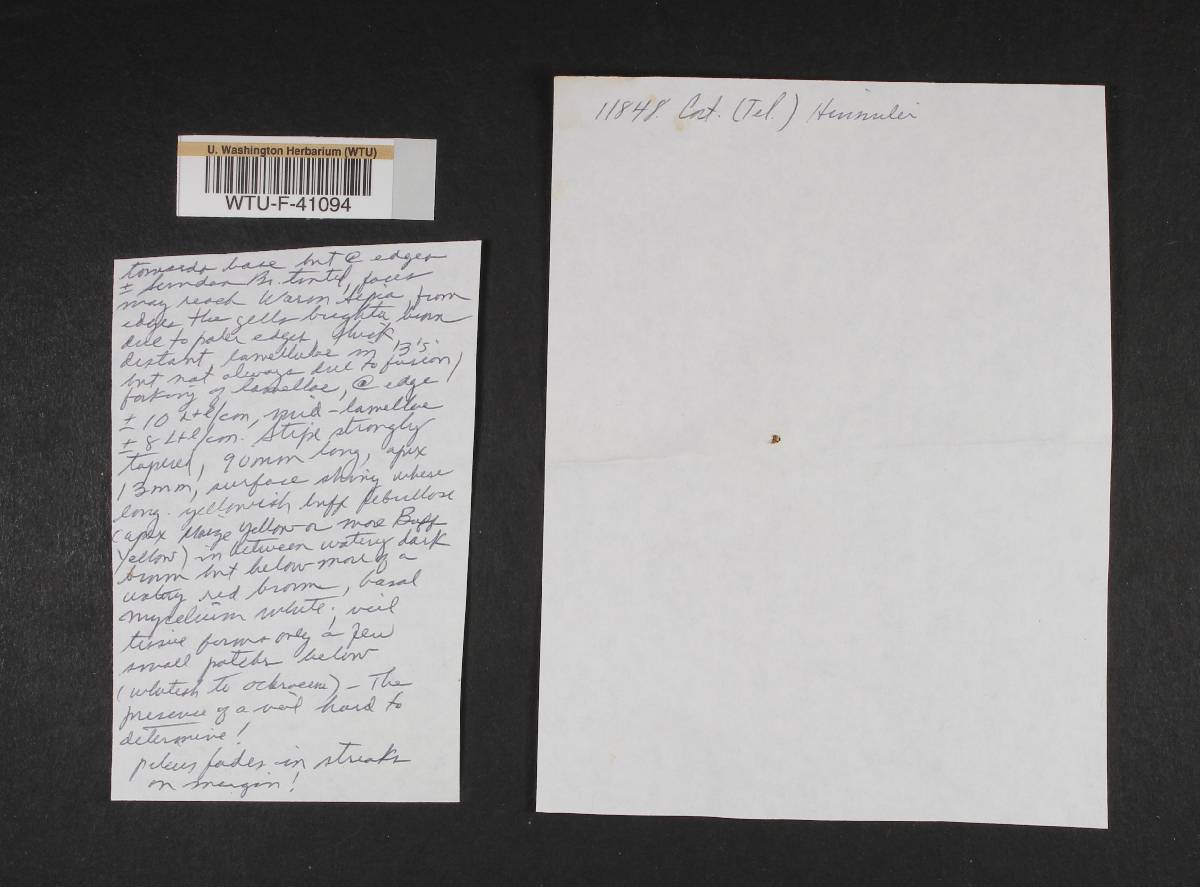 U. Washington Herbarium (WTU)
WTU-F-41094
11848 Cort. (Tel.) Hinnulei
towards base but @ edges
± Sundan Br. tinted, faces
may reach Warm Sepia, from
edges the gills brighter brown
due to paler edges, thick,
distant, lamellulae in 3's
but not always due to fusion/
forking of lamellae, @ edge
± 10 L+l/cm, mid-lamellae
± 8 L+l/cm. Stipe strongly
tapered, 90mm long, apex
13mm, surface shiny where
long. yellowish buff fibrillose
(apex Maize Yellow or more Buff
Yellow) in between watery dark
brown but below more of a
watery red brown, basal
mycelium white; veil
tissue forms only a few
small patches below
(whitish to ochraceous) – The
presence of a veil hard to
determine!
pileus fades in streaks
on margin!